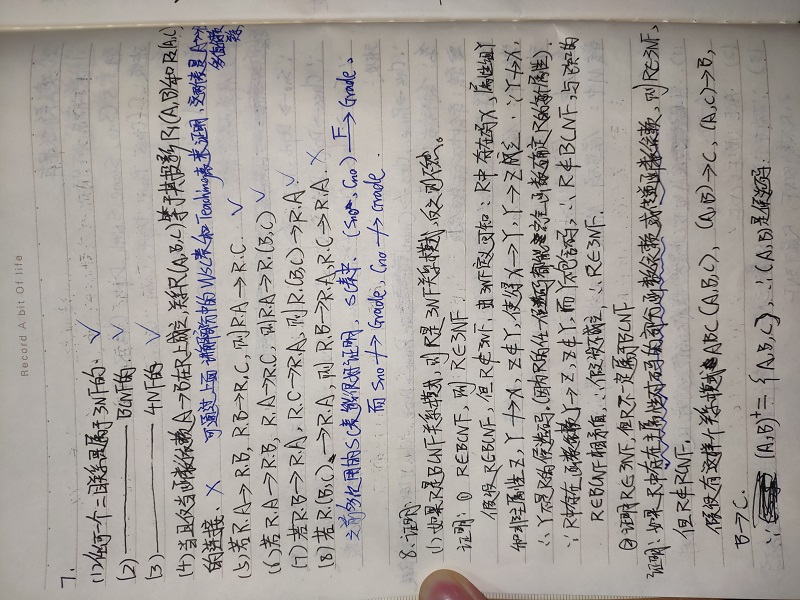 Record A bit Of life
7.
(1) 任何一个二目关系是属于3NF的、✓
(2) ———— BCNF的 ✓
(3) ———— 4NF的 ✓
(4) 当且仅当函数依赖A→B在R上成立,关系R(A,B,C)等于其投影R₁(A,B)和R₂(A,C)
的连接、× 可通过上面 中的WSC表和Teaching表来证明,
多值依赖
(5) 若R.A→R.B, R.B→R.C, 则R.A→R.C. ✓
(6) 若R.A→R.B, R.A→R.C, 则R.A→R.(B,C) ✓
(7) 若R.B→R.A, R.C→R.A, 则R.(B,C)→R.A ✓
(8) 若R.(B,C)→R.A, 则R.B→R.A, R.C→R.A. ×
之前多次用的SC表能很好证明、SC表中、(Sno, Cno) F→ Grade。
而 Sno ↛ Grade, Cno ↛ Grade.
8. 证明:
(1) 如果R是BCNF关系模式,则R是3NF关系模式,反之则不然。
证明:① R∈BCNF, 则 R∈3NF.
假设R∈BCNF, 但R∉3NF. 由3NF定义可知:R中存在码X, 属性组Y
和非主属性Z, Y↛X, Z⊄Y, 使得X→Y, Y→Z成立. ∵Y↛X,
∴Y不是R的候选码.(因为R的任一候选码都能函数确定R的所有属性).
∵R中存在函数依赖Y→Z, Z⊄Y, 而Y不包含码, ∴R∉BCNF, 与已知的
R∈BCNF相矛盾, ∴假设不成立, ∴R∈3NF.
② 证明R∈3NF, 但R不一定属于BCNF.
证明:如果R中存在主属性对码的部分函数依赖或传递函数依赖, 则R∈3NF,
但R∉BCNF.
假设有这样个关系模式ABC(A,B,C), (A,B)→C, (A,C)→B,
B→C.
∴ (A,B)⁺={A,B,C}, ∴(A,B)是候选码.